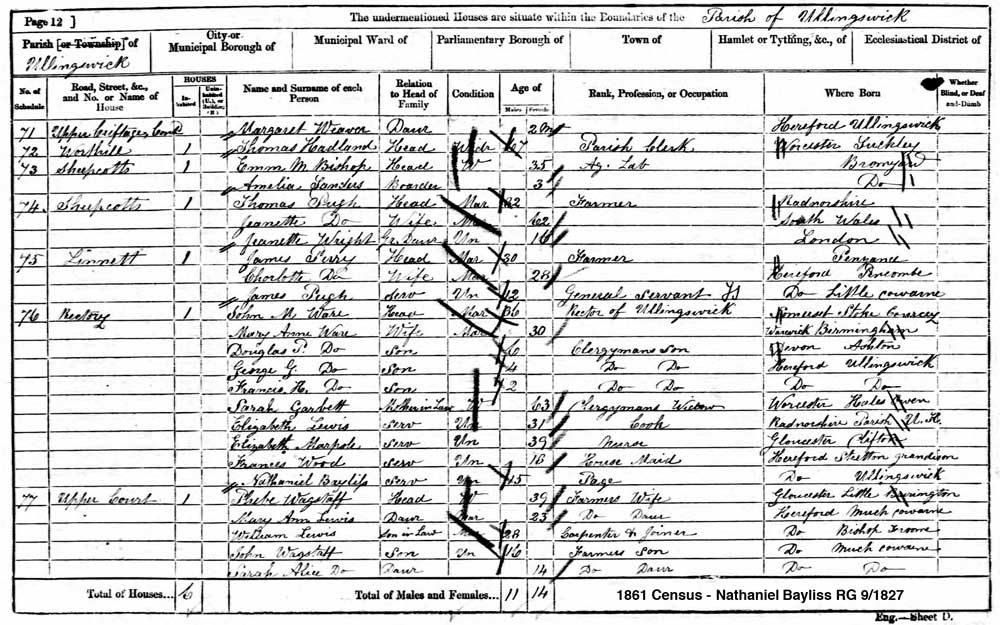 Page 12 ] The undermentioned Houses are situate within the Boundaries of the Parish of Ullingswick
Parish [or Township] of Ullingswick City or Municipal Borough of Municipal Ward of Parliamentary Borough of Town of Hamlet or Tything, &c., of Ecclesiastical District of
No. of Schedule Road, Street, &c., and No. or Name of House HOUSES Inhabited Uninhabited (U.), or Building (B.) Name and Surname of each Person Relation to Head of Family Condition Age of Males Females Rank, Profession, or Occupation Where Born Whether Blind, or Deaf and-Dumb
71 Upper Margaret Weaver Daur 2 m Hereford Ullingswick
72 1 Thomas Hadland Head Widr 67 Parish Clerk Worcester Suckley
73 Sheepcotts 1 Emma M. Bishop Head W 35 Ag. Lab Bromyard
Amelia Sanders Boarder 3 Do
74 Sheepcotts 1 Thomas Pugh Head Mar 82 Farmer Radnorshire
Jeanette Do Wife Mar 62 South Wales
Jeanette Wright Gr. Daur Un 16 London
75 Linnett 1 James Perry Head Mar 30 Farmer
Charlotte Do Wife Mar 28 Hereford Pencombe
James Pugh Serv Un 12 General Servant Do Little cowarne
76 Rectory 1 John M. Ware Head Mar 36 Rector of Ullingswick Somerset Stoke
Mary Anne Ware Wife Mar 30 Warwick Birmingham
Douglas P. Do Son 6 Clergymans Son Devon Ashton
George G. Do Son 4 Do Do Hereford Ullingswick
Francis H. Do Son 2 Do Do Do Do
Sarah Garbett Mother in Law W 63 Clergymans Widow Worcester Hales Owen
Elizabeth Lewis Serv Un 31 Cook Radnorshire Parish U. K.
Elizabeth Sharpole Serv Un 39 Nurse Gloucester Clifton
Frances Wood Serv Un 18 House Maid Hereford Stretton grandison
Nathaniel Bayliss Serv Un 15 Page Do Ullingswick
77 Upper Court 1 Phebe Wagstaff Head W 39 Farmers Wife Gloucester Little
Mary Ann Lewis Daur Mar 23 Do Daur Hereford Much cowarne
William Lewis Son in Law Mar 28 Carpenter & Joiner Do Bishop Froome
John Wagstaff Son Un 16 Farmers Son Do Much cowarne
Sarah Alice Do Daur 14 Do Daur Do Do
Total of Houses... 6 Total of Males and Females... 11 14 1861 Census - Nathaniel Bayliss RG 9/1827
Eng.—Sheet D.